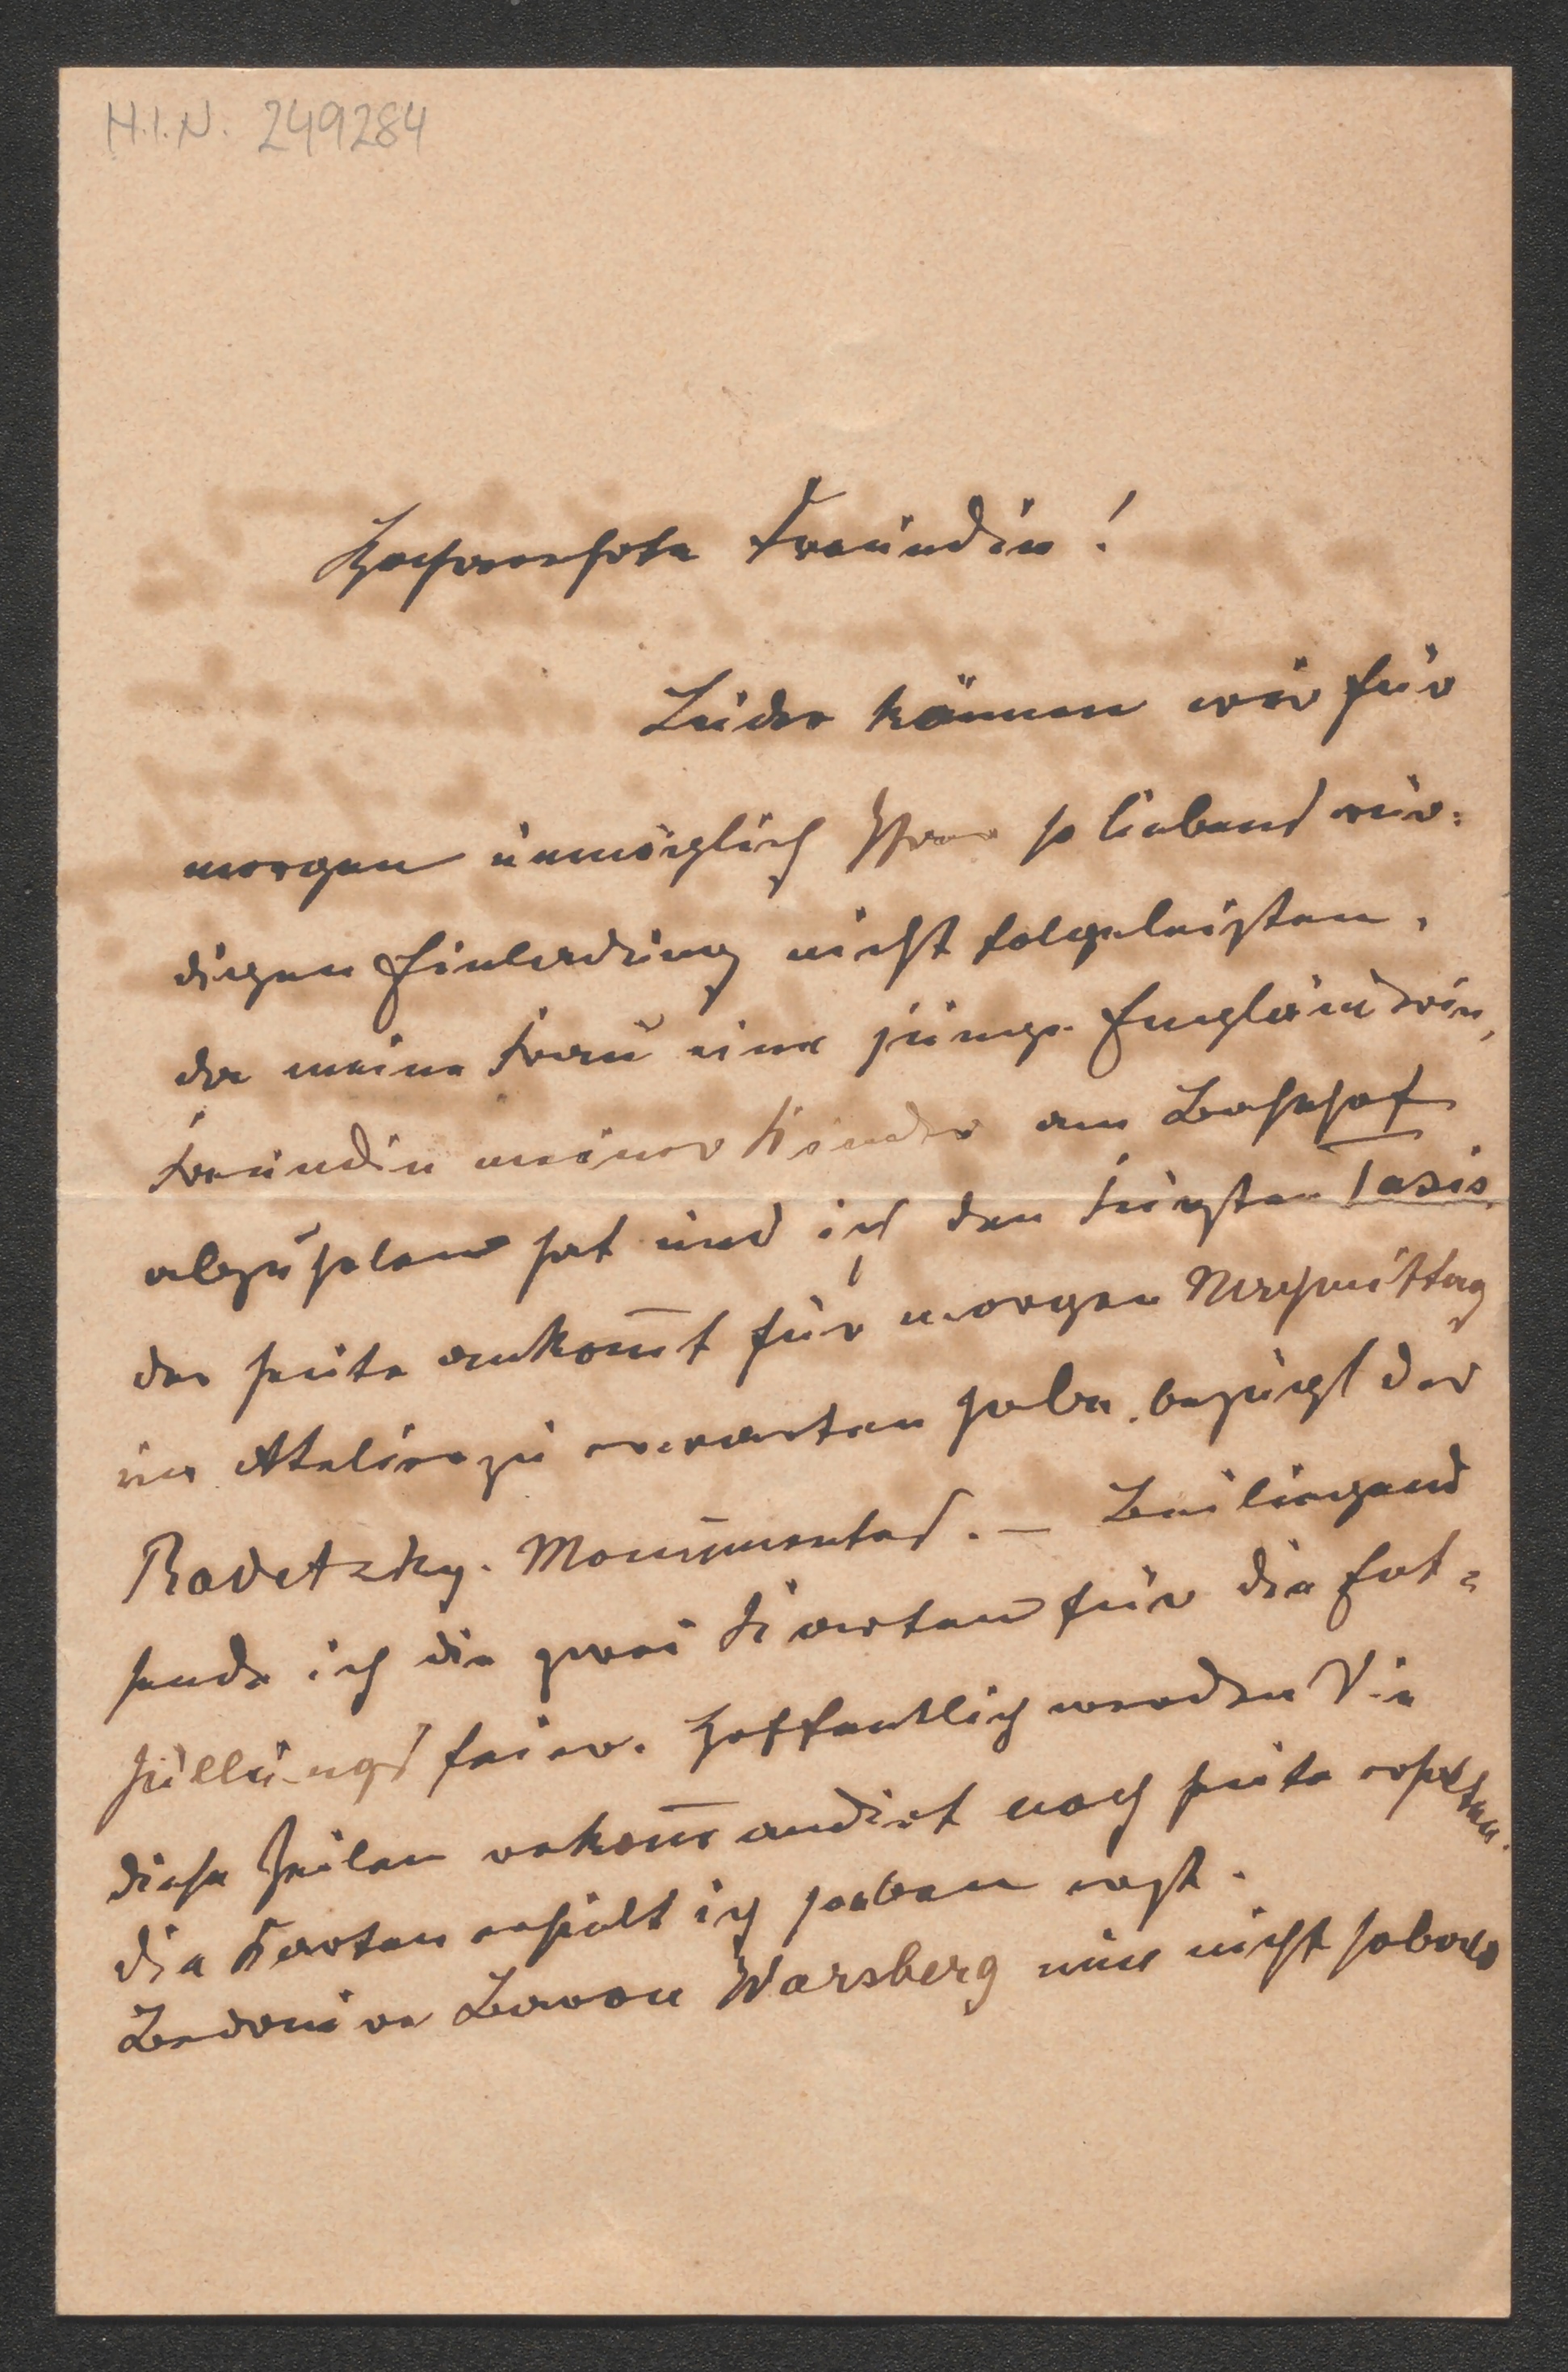 H.I.N. 249284
Hochverehrte Freundin!
Leider können wir für
morgen unmöglich Ihrer so liebenswür=
digen Einladung nicht folgeleisten,
da meine Frau eine junge Engländerin,
Freundin meiner Kinder am Bahnhof
abzuholen hat und ich den Fürsten Tasis
der heute ankom̄t für morgen Nachmittag
im Atelier zu erwarten habe, bezügl der
Radetzky-Monumentes. – Beiliegend
sende ich die zwei Karten für die Ent=
hüllungsfeier. Hoffentlich werden Sie
diese Zeilen rekom̄andirt noch heute erhalten.
Die Karten erhielt ich soeben erst.
Bedauere Baron Warsberg nun nicht sobald